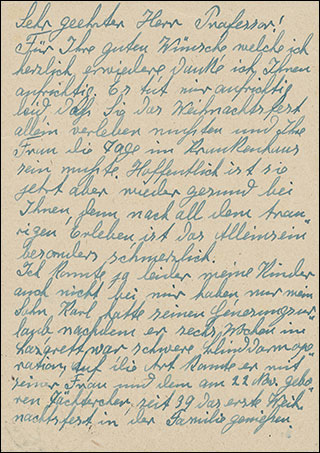 Sehr geehrter Herr Professor!
Für Ihre guten Wünsche welche ich
herzlich erwiedere danke ich Ihnen
aufrichtig. Es tut mir aufrichtig
leid daß Sie das Weihnachtsfest
allein verleben mußten und Ihre
Frau die Tage im Krankenhaus
sein mußte. Hoffentlich ist sie
jetzt aber wieder gesund bei
Ihnen, denn nach all dem trau-
rigen Erleben ist das Alleinsein
besonders schmerzlich.
Ich konnte ja leider meine Kinder
auch nicht bei mir haben, nur mein
Sohn Karl hatte seinen Genesungsur-
laub, nachdem er sechs Wochen im
Lazarett war schwere Blinddarmope-
ration, auf die Art konnte er mit
seiner Frau und dem am 22 Nov. gebo-
renen Töchterchen, seit 39 das erste Weih-
nachtsfest, in der Familie genießen